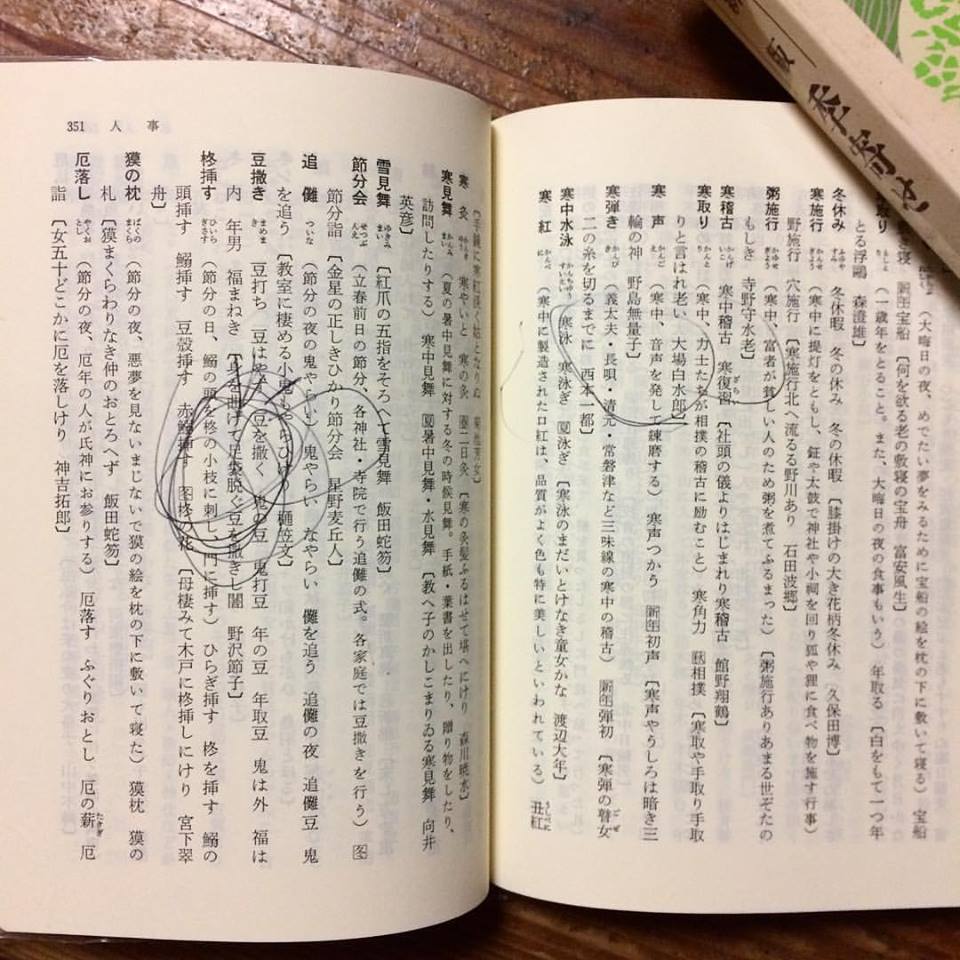 (大晦日の夜、めでたい夢をみるために宝船の絵を枕の下に敷いて寝る) 宝船
き寝 新年宝船 〔何を欲る老の敷寝の宝舟 富安風生〕
取り (一歳年をとること。また、大晦日の夜の食事もいう) 年取る 〔白をもて一つ年
とる浮鷗 森澄雄〕
冬休み 冬休暇 冬の休み 冬の休暇 〔膝掛けの大き花柄冬休み 久保田博〕
寒施行 (寒中に提灯をともし、鉦や太鼓で神社や小祠を回り狐や狸に食べ物を施す行事)
野施行 穴施行 〔寒施行北へ流るる野川あり 石田波郷〕
粥施行 (寒中、富者が貧しい人のため粥を煮てふるまった) 〔粥施行ありあまる世ぞたの
もしき 寺野守水老〕
寒稽古 寒中稽古 寒復習 〔社頭の儀よりはじまれり寒稽古 館野翔鶴〕
寒取り (寒中、力士たちが相撲の稽古に励むこと) 寒角力 秋相撲 〔寒取や手取り手取
りと言はれ老い 大場白水郎〕
寒声 (寒中、音声を発して練磨する) 寒声つかう 新年初声 〔寒声やうしろは暗き三
輪の神 野島無量子〕
寒弾き (義太夫・長唄・清元・常磐津など三味線の寒中の稽古) 新年弾初 〔寒弾の瞽女
二の糸を切るまでに 西本一都〕
寒中水泳 寒泳 寒泳ぎ 夏泳ぎ 〔寒泳のまだいとけなき童女かな 渡辺大年〕
寒紅 (寒中に製造された口紅は、品質がよく色も特に美しいといわれている) 丑紅
351 人事
寒灸 寒やいと 寒の灸 春二日灸 〔寒の灸髪ふるはせて堪へにけり 森川暁水〕
寒見舞 (夏の暑中見舞に対する冬の時候見舞。手紙・葉書を出したり、贈り物をしたり、
訪問したりする) 寒中見舞 夏暑中見舞・水見舞 〔教へ子のかしこまりゐる寒見舞 向井
英彦〕
雪見舞 〔紅爪の五指をそろへて雪見舞 飯田蛇笏〕
節分会 (立春前日の節分、各神社・寺院で行う追儺の式。各家庭では豆撒きを行う) 冬
節分詣 〔金星の正しきひかり節分会 星野麦丘人〕
追儺 (節分の夜の鬼やらい) 鬼やらい なやらい 儺を追う 追儺の夜 追儺豆 鬼
を追う 〔教室に棲める小鬼もやらひけり 樋笠文〕
豆撒き 豆打ち 豆はやす 豆を撒く 鬼の豆 鬼打豆 年の豆 年取豆 鬼は外 福は
内 年男 福まねき 〔身を曲げて足袋脱ぐ豆を撒きし闇 野沢節子〕
柊挿す (節分の日、鰯の頭を柊の小枝に刺し、門に挿す) ひらぎ挿す 柊を挿す 鰯の
頭挿す 鰯挿す 豆殻挿す 赤鰯挿す 冬柊の花 〔母棲みて木戸に柊挿しにけり 宮下翠
舟〕
獏の枕 (節分の夜、悪夢を見ないまじないで獏の絵を枕の下に敷いて寝た) 獏枕 獏の
札 〔獏まくらわりなき仲のおとろへず 飯田蛇笏〕
厄落し (節分の夜、厄年の人が氏神にお参りする) 厄落す ふぐりおとし 厄の薪 厄
詣 〔女五十どこかに厄を落しけり 神吉拓郎〕
季寄せ